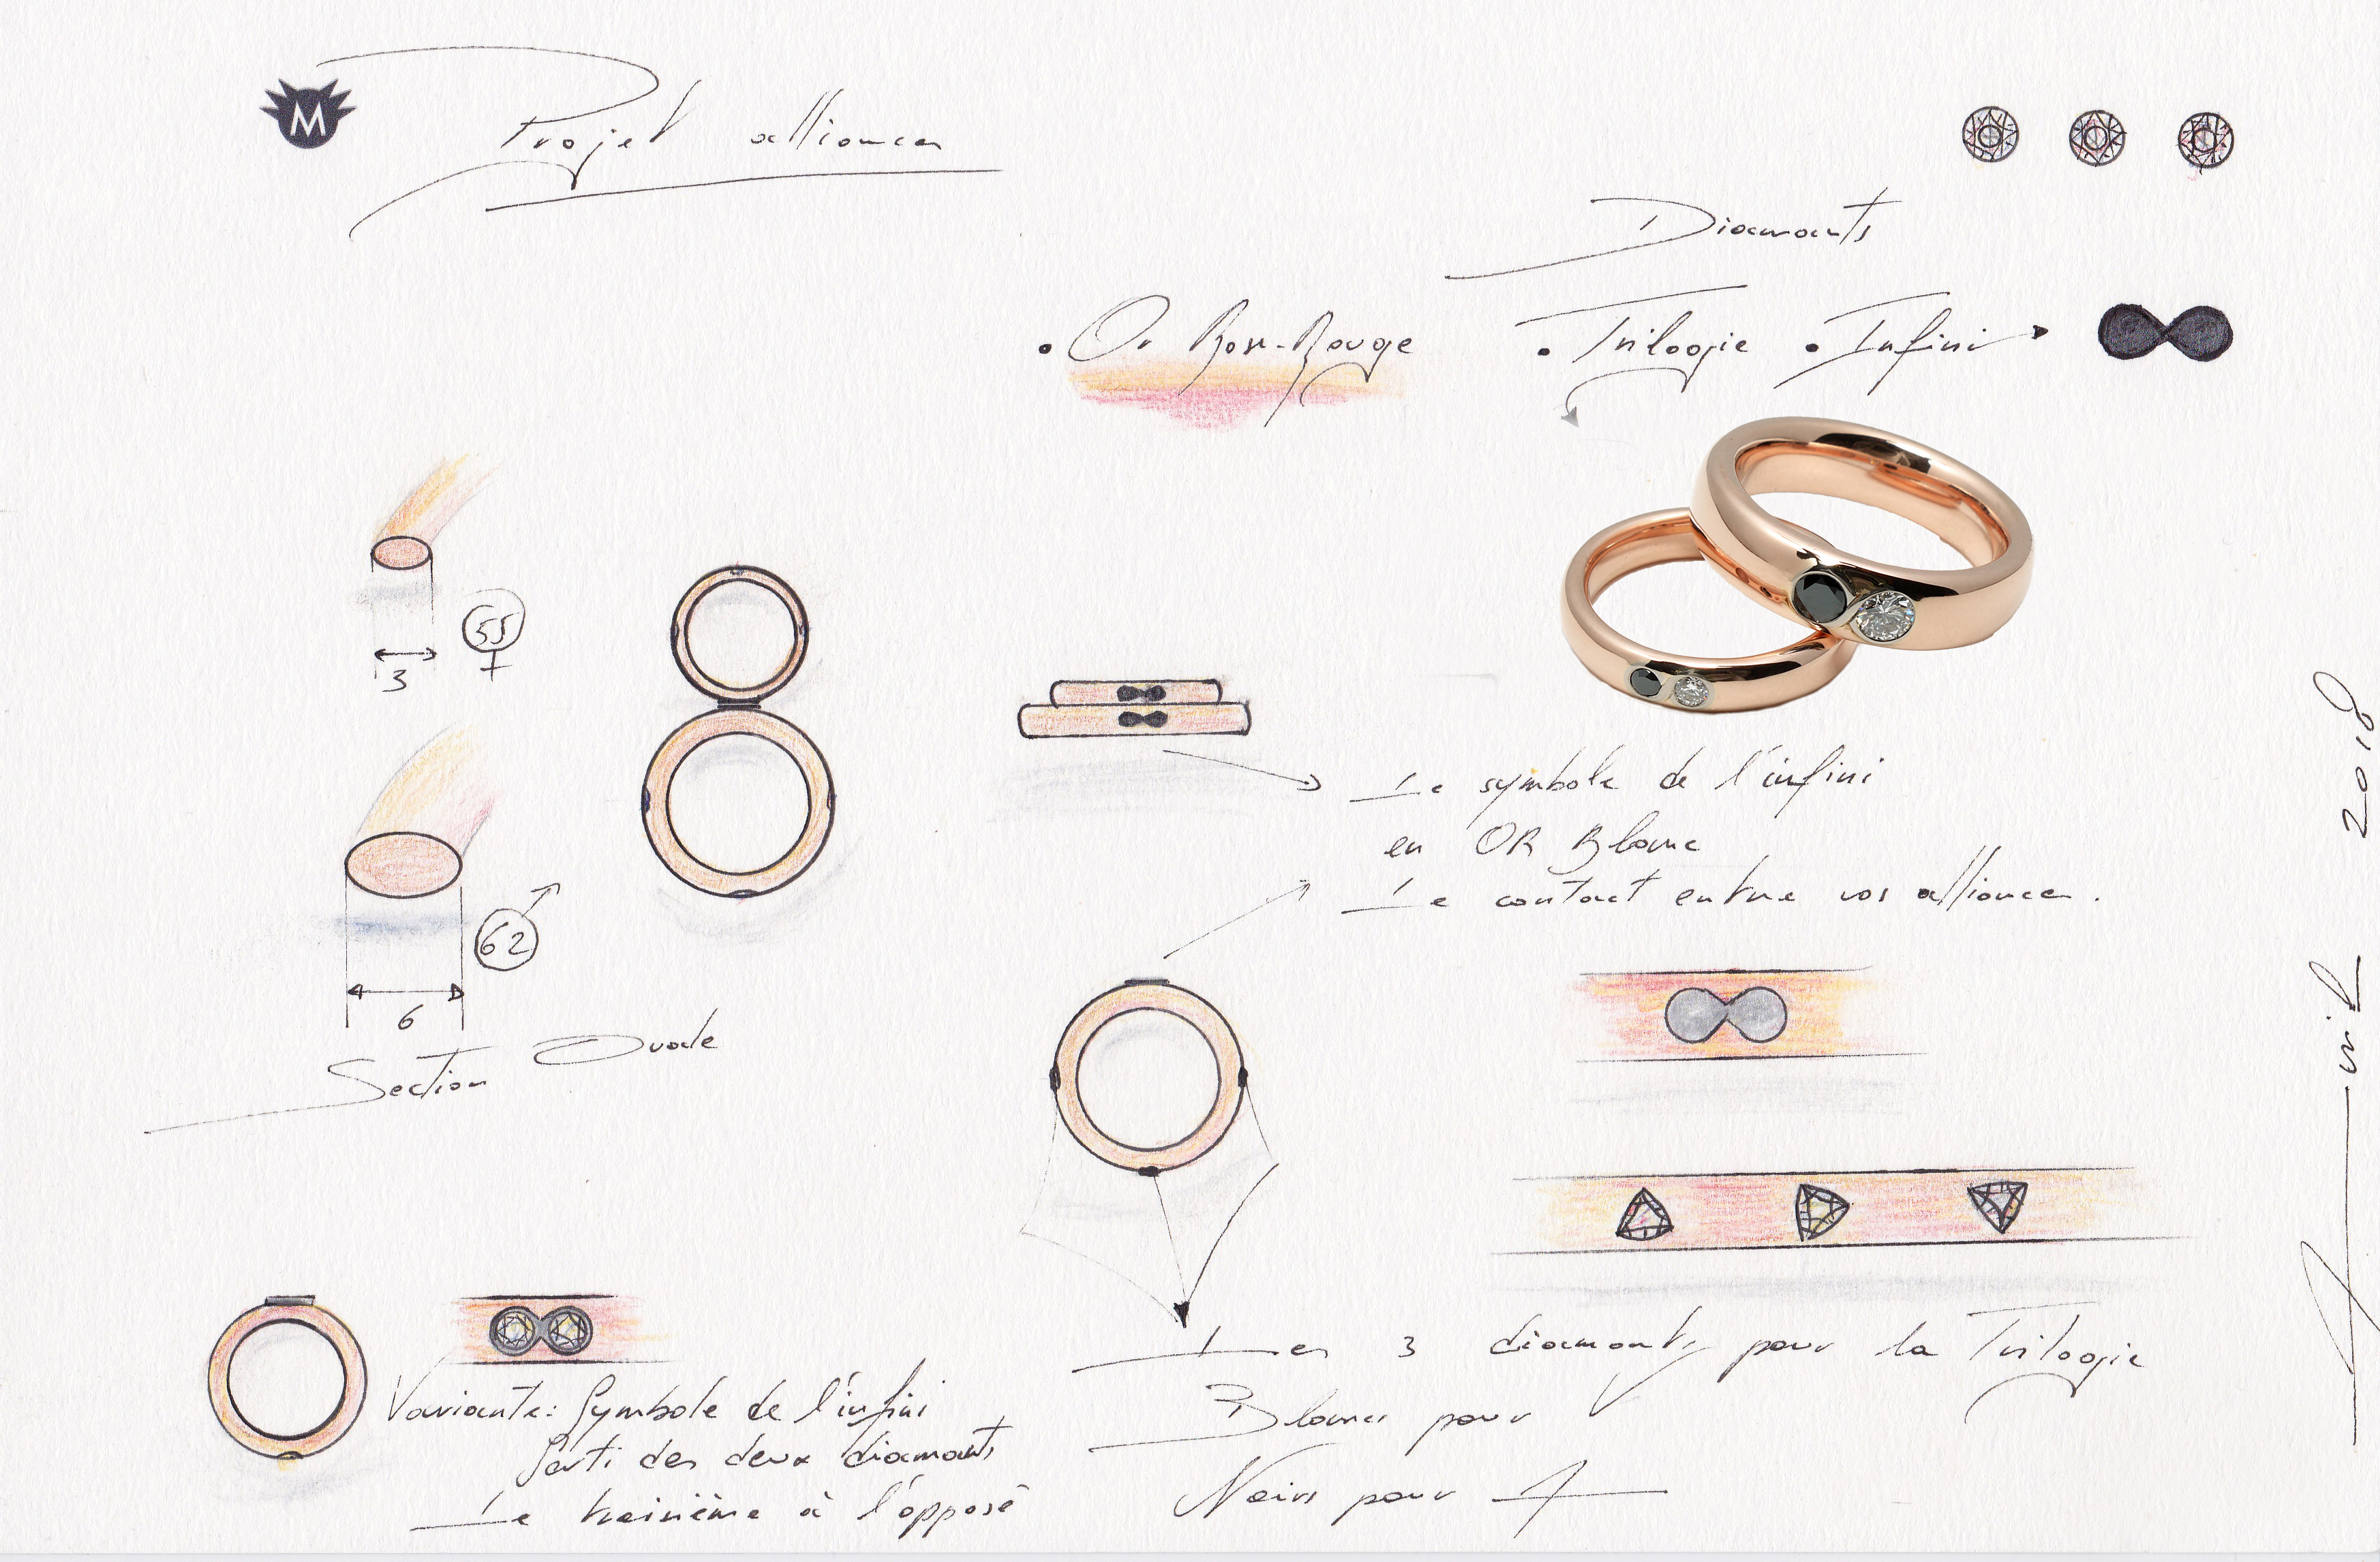 M
Projet alliances
Diamants
• Or Rose-Rouge
• Trilogie • Infini
55
3
62
6
Section Ovale
Le symbole de l'infini
en OR Blanc
Le contact entre vos alliances.
Variante: Symbole de l'infini
Serti des deux diamants
Le troisième à l'opposé
Les 3 diamants pour la Trilogie
Blancs pour
Noirs pour
2018